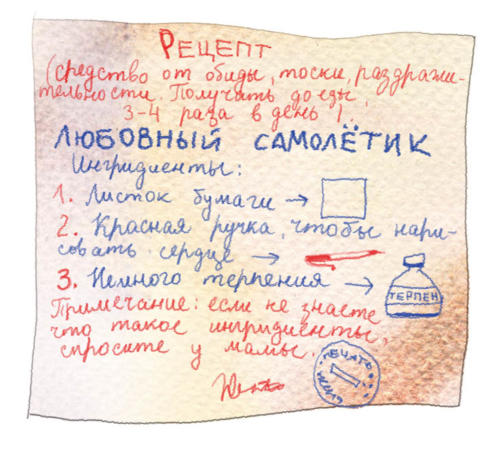 Рецепт
(средство от обиды, тоски, раздражи-
тельности. Получать до еды
3-4 раза в день).
ЛЮБОВНЫЙ САМОЛЁТИК
Ингридиенты:
1. Листок бумаги →
2. Красная ручка, чтобы нари-
совать сердце →
3. Немного терпения →
ТЕРПЕН
Примечание: если не знаете
что такое ингридиенты,
спросите у мамы.
ПЕЧАТЬ